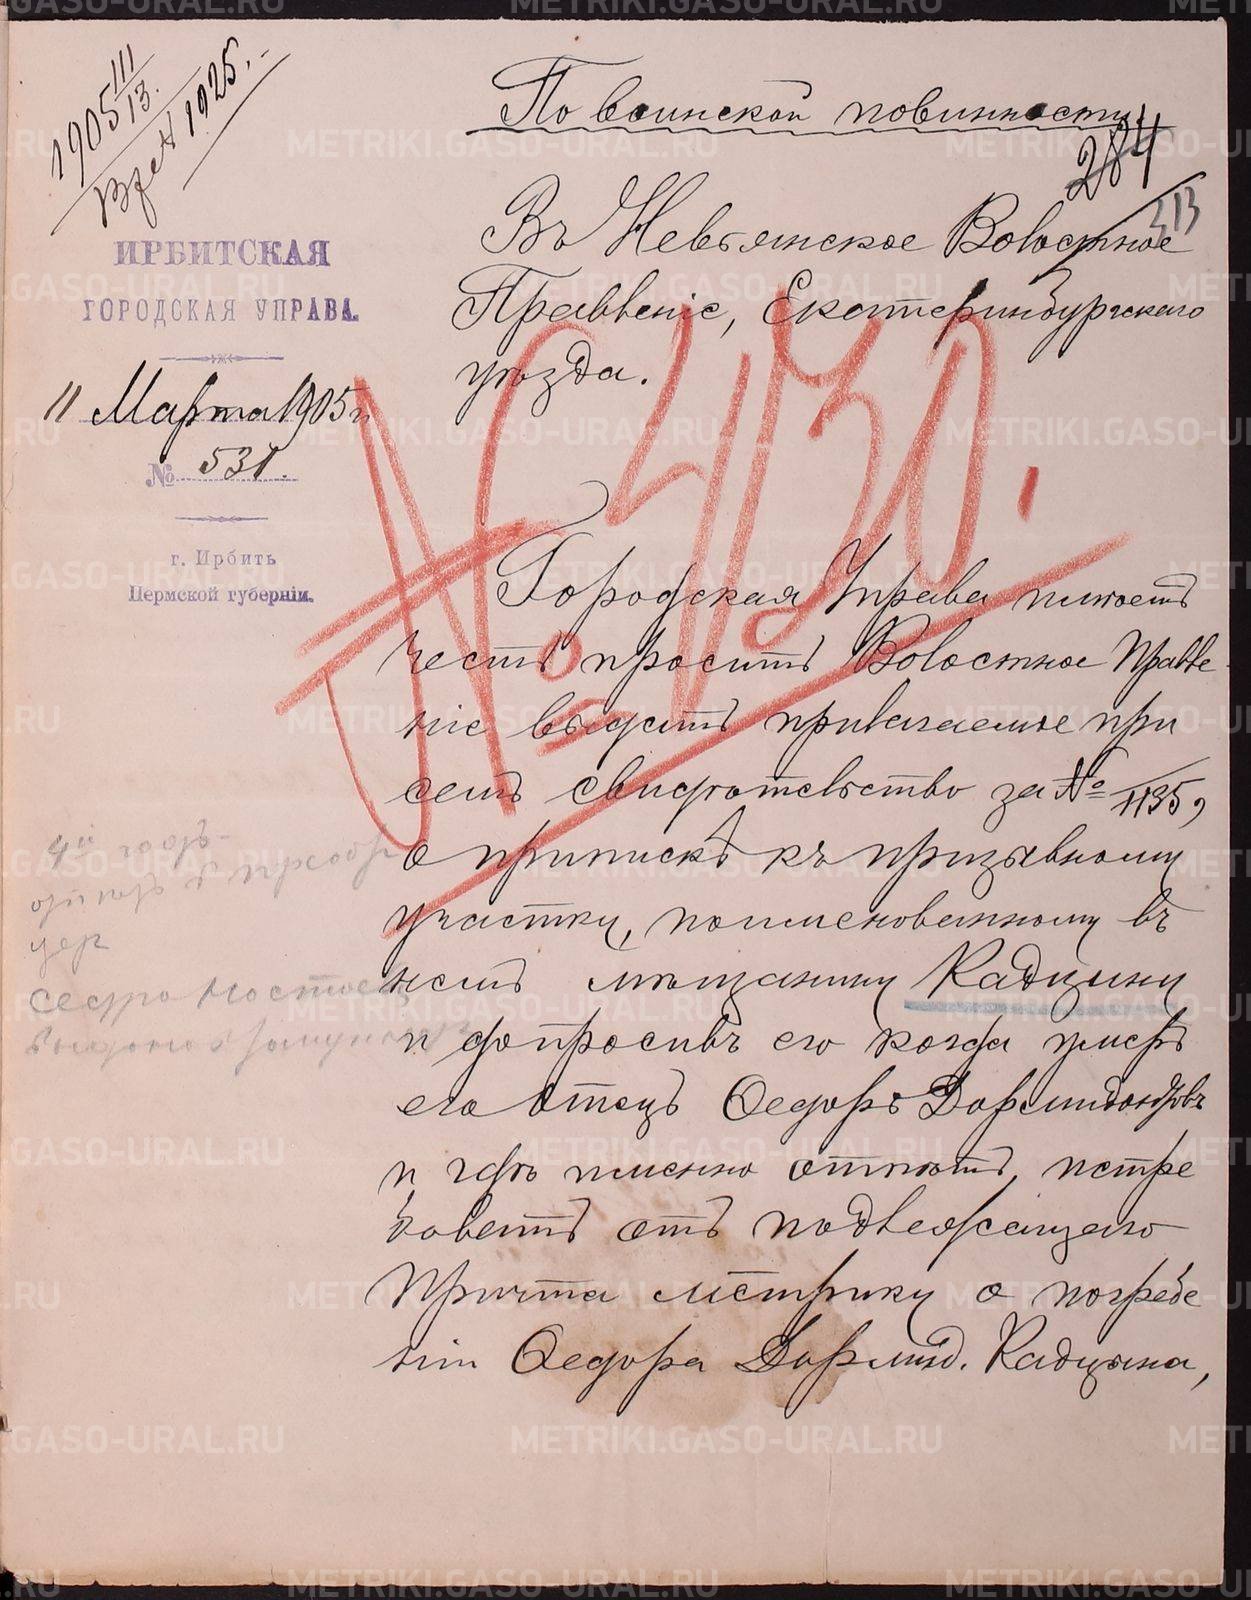 1905 III/13.
Вх. № 1925.
По воинской повинности.
284
213
ИРБИТСКАЯ
ГОРОДСКАЯ УПРАВА.
11 Марта 1905 г.
№ 531.
г. Ирбить
Пермской губерніи.
Въ Невьянское Волостное
Правленіе, Екатеринбургскаго
уѣзда.
№ 430.
Городская Управа имѣетъ
честь просить Волостное Правле-
ніе выдать прилагаемое при
семъ свидѣтельство за № 1135,
о припискѣ къ призывному
участку, поименованному въ
немъ мѣщанину Кадцыну
и допросивъ его когда умеръ
его отецъ Ѳедоръ Дормидонтовъ
и гдѣ именно отпѣтъ, истре
бовать отъ подлежащаго
Причта метрику о погребе
ніи Ѳедора Дормид. Кадцына,
сестра
METRIKI.GASO-URAL.RU